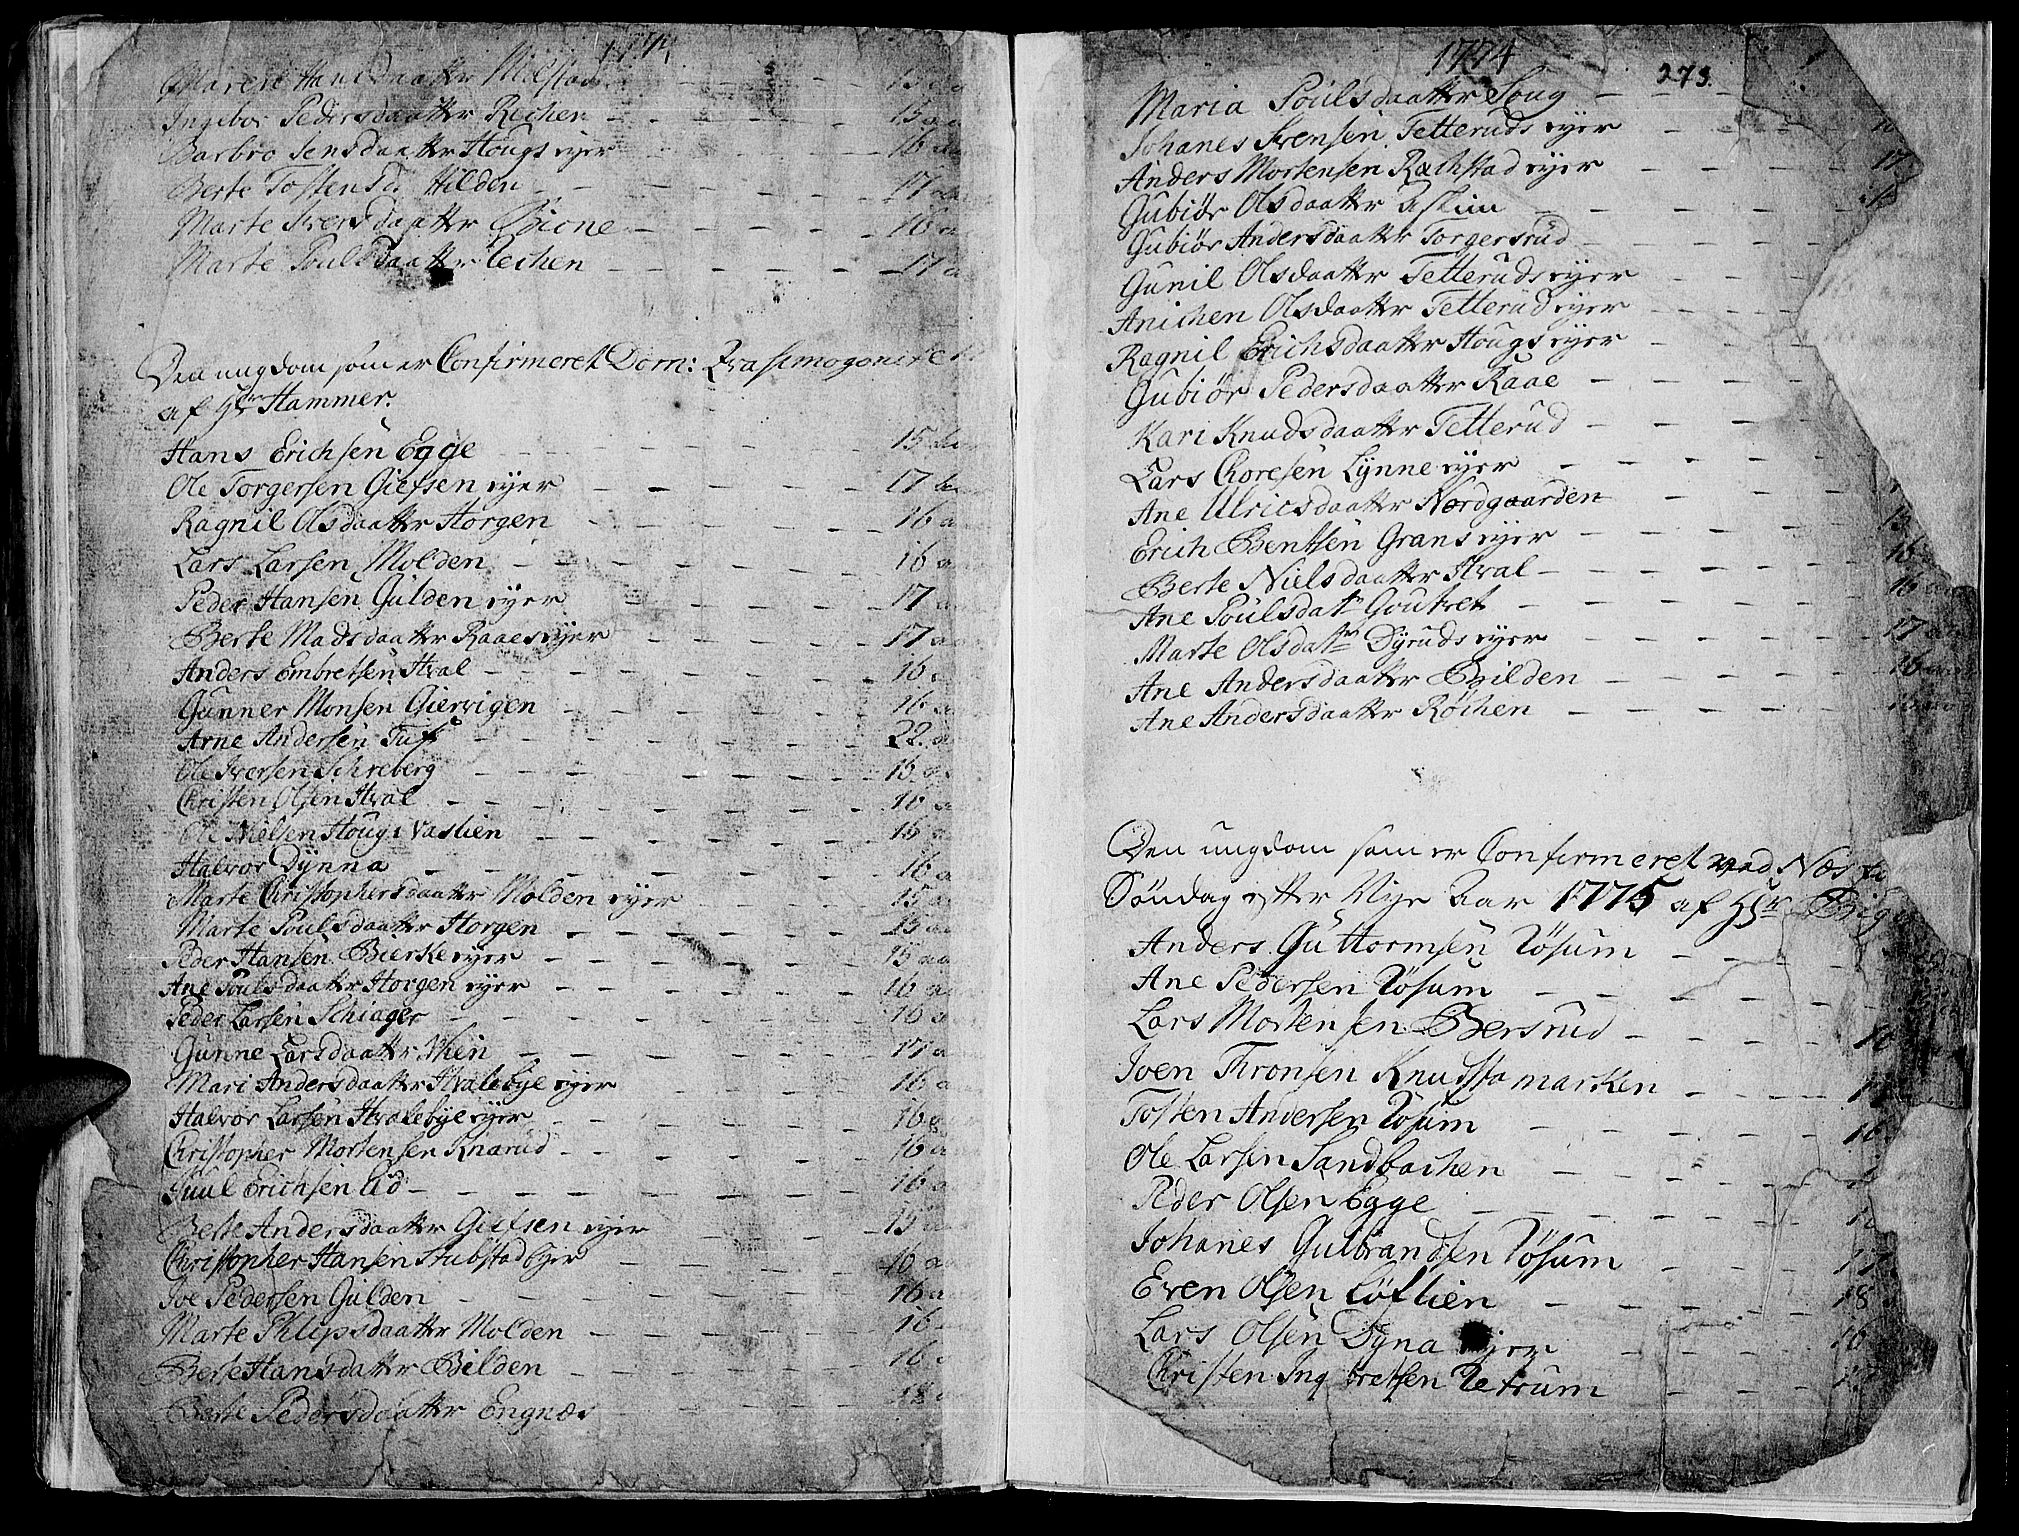 1774
Maren Hansdaatter Milstad 15
Ingebor Pedersdaatter Rechen 15
Barbro Jensdaatter Hougs eyer 16
Berte Tostensd: Hilden 17
Marte Iversdaatter Bione 16
Marte Poulsdaatter Rechen 17
Den ungdom som er Confirmeret Dom: Qvasimogonite
af Hr Hammer.
Hans Erichsen Egge 15
Ole Torgersen Giefsen eyer 17
Ragnil Olsdaatter Horgen 16
Lars Larsen Molden 16
Peder Hansen Gulden eyer 17
Berte Madsdaatter Raaes eyer 17
Anders Embretsen Hval 16
Gunner Monsen Giervigen 16
Arne Andersen Tuf 22
Ole Iversen Schreberg 16
Christen Olsen Hval 16
Ole Nielsen Houg i Vaslien 16
Halvor Dynna 16
Marte Christophersdaatter Molden eyer 15
Marte Poulsdaatter Horgen 15
Peder Hansen Bierke eyer 15
Ane Poulsdaatter Horgen eyer 16
Peder Larsen Schiager 16
Gunne Larsdaatter Nhen 17
Mari Andersdaatter Hvalebye eyer 16
Halvor Larsen Hvalebye eyer 16
Christopher Mortensen Knarud 16
Juul Erichsen Lid 16
Berte Andersdaatter Giefsen eyer 15
Christopher Hansen Stubstad Eyer 16
Joe Pedersen Gulden 16
Marte Phlipsdaatter Molden 16
Berte Hansdatter Bilden 16
Berte Pedersdaatter Engnæs 18
1774
273.
Maria Poulsdaatter Houg
Johanes Svensen Tetteruds eyer
Anders Mortensen Rækstad eyer 17
Gubiør Olsdaatter Askim
Gubiør Andersdaatter Torgersrud
Gunil Olsdaatter Tetteruds eyer
Anichen Olsdaatter Tetterud eyer
Ragnil Erichsdaatter Hougs eyer
Gubiør Pedersdaatter Raae
Kari Knudsdaatter Tetterud
Lars Choresen Lynne eyer
Ane Ulricsdaatter Nordgaarden
Erich Bentsen Grans eyer 15
Berte Nielsdaatter Hval 16
Ane Poulsdatr Goutvet 16
Marte Olsdatr Dyruds eyer 17
Ane Andersdaatter Bilden 16
Ane Andersdaatter Røchen
Den ungdom som er Confirmeret ved Næs
Søndag efter Nye Aar 1775 af Hr
Anders Guttormsen Røsum
Ane Pedersen Røsum
Lars Mortensen Bersrud 16
Joen Tronsen Knudsta marken
Tosten Andersen Røsum 16
Ole Larsen Sandbachen
Peder Olsen Egge
Johanes Gulbrandsen Røsum 17
Even Olsen Løflien 18
Lars Olsen Dyna eyer 16
Christen Ingbretsen Retrum 17